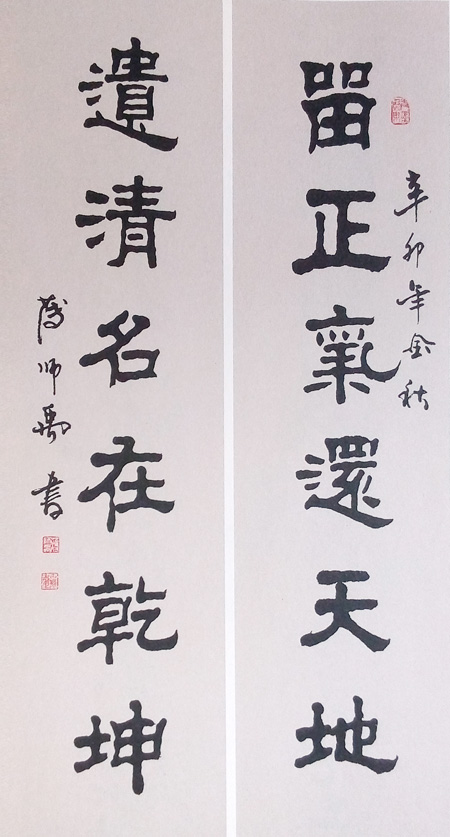 辛卯年金秋
畱正氣還天地
遺清名在乾坤
师禹書